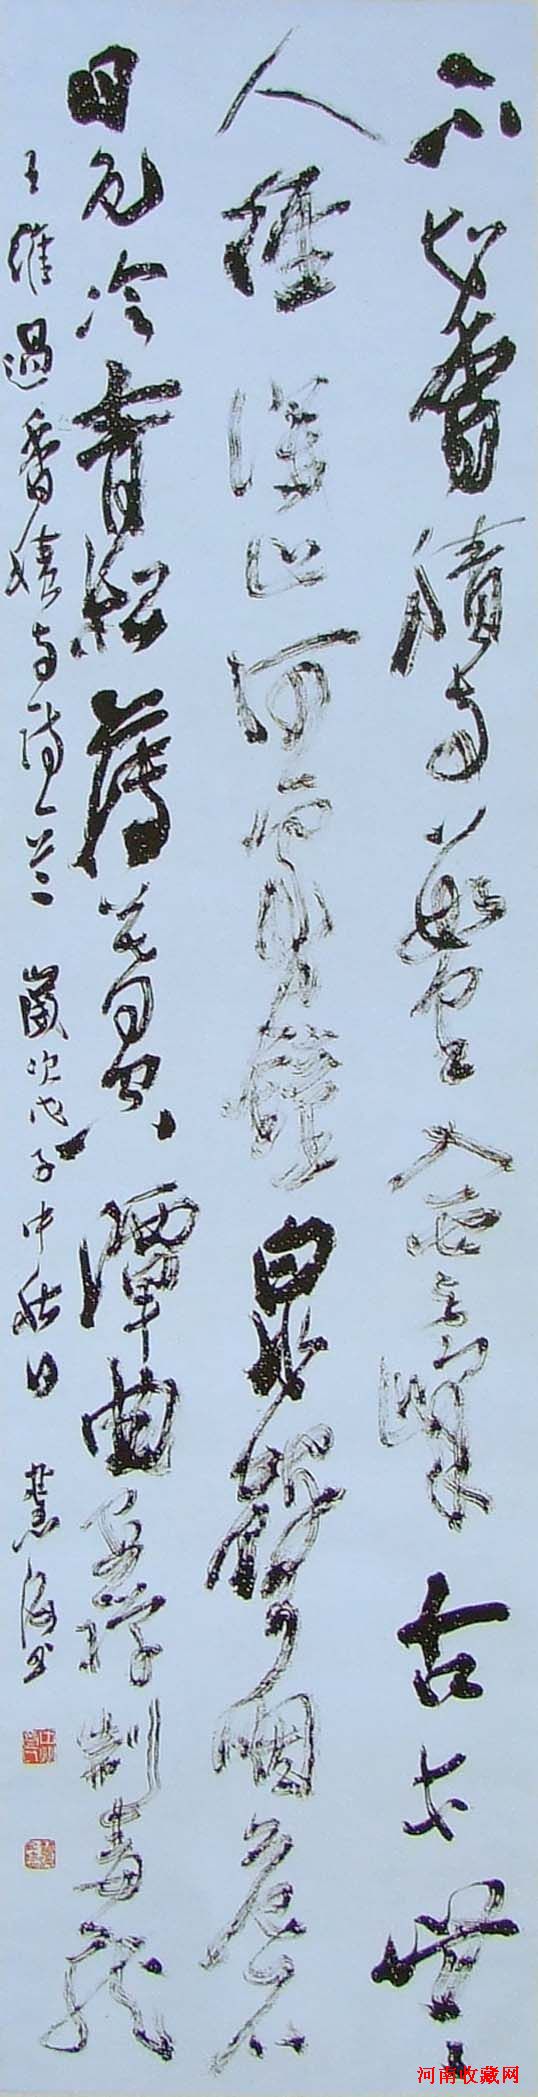 不知香積寺數里入雲峰古木無
人徑深山何處鐘泉聲咽危石
日色冷青松薄暮空潭曲安禪制毒龍
王維過香積寺詩一首 歲次戊子中秋日 慧海书
河南收藏网